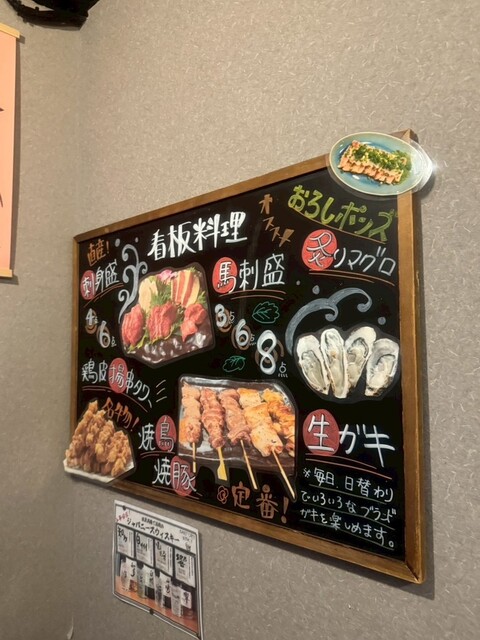 看板料理
直産!
刺身盛
4点
6点
オススメ!!
おろしポンズ
炙りマグロ
馬刺盛
3点
6点
8点
鶏皮揚串タワー
名物!
焼鳥
焼豚
定番!
生ガキ
※毎日、日替わり
でいろいろなブランド
ガキを楽しめます。
ジャパニーズウィスキー